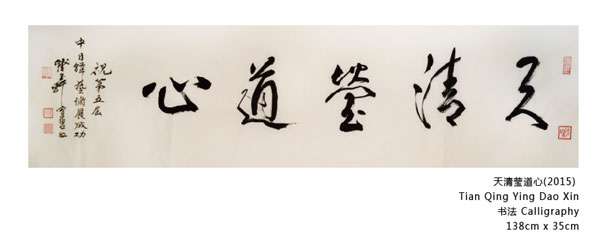 天清莹道心
祝第五届
中日韩艺术展成功
天清莹道心(2015)
Tian Qing Ying Dao Xin
书法 Calligraphy
138cm x 35cm